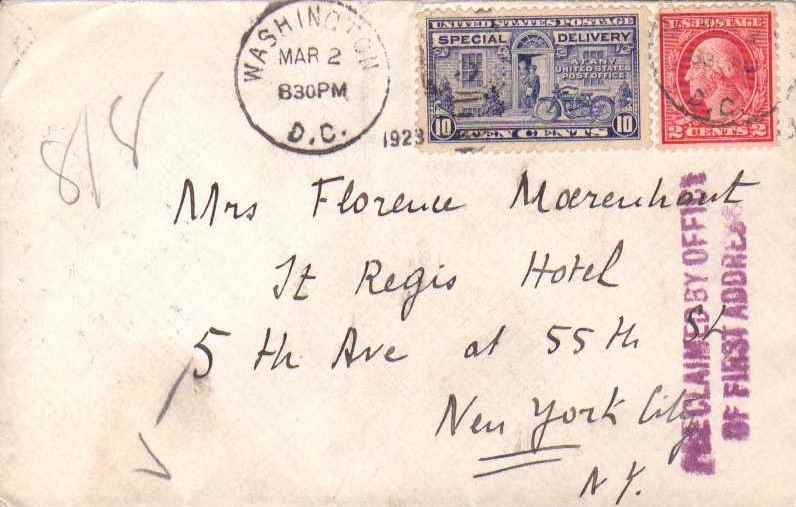 WASHINGTON
MAR 2
830PM
D.C.
1923
UNITED STATES POSTAGE
SPECIAL DELIVERY
AT ANY
UNITED STATES
POST OFFICE
10 TEN CENTS 10
U.S. POSTAGE
2 CENTS 2
D.C.
8/8
Mrs Florence Moerenhout
St Regis Hotel
5 th Ave at 55 th St
New York City
N.Y.
FEE CLAIMED BY OFFICE
OF FIRST ADDRESS